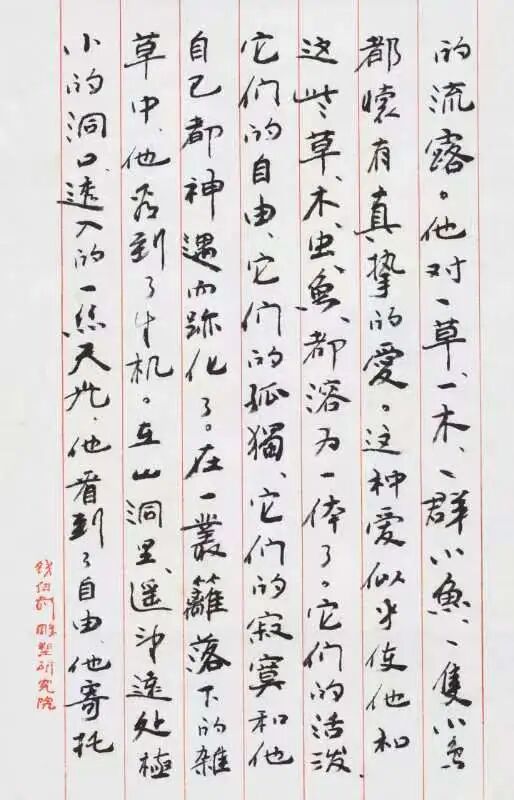 的流露。他对一草、一木、一群小魚、一隻小鱼
都懷有真挚的愛。这种爱似乎使他和
这些草、木、虫、魚、都溶为一体了。它们的活泼、
它们的自由、它们的孤獨、它们的寂寞和他
自己都神遇而跡化了。在一叢籬落下的雜
草中、他看到了生机。在山洞里、遥神遠处極
小的洞口、透入的一点天光、他看到了自由、他寄托
雕塑研究院